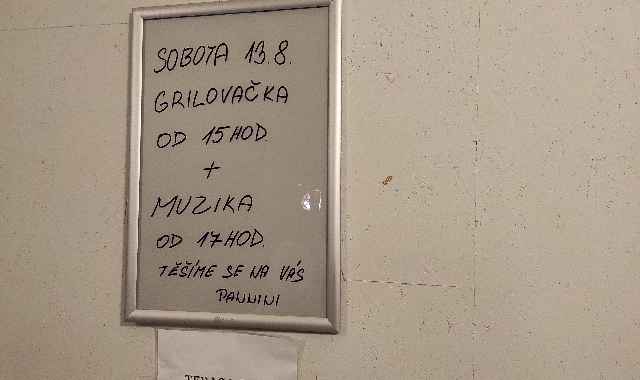 SOBOTA 13.8.
GRILOVAČKA
OD 15 HOD.
+
MUZIKA
OD 17 HOD.
TĚŠÍME SE NA VÁS
PANNINI